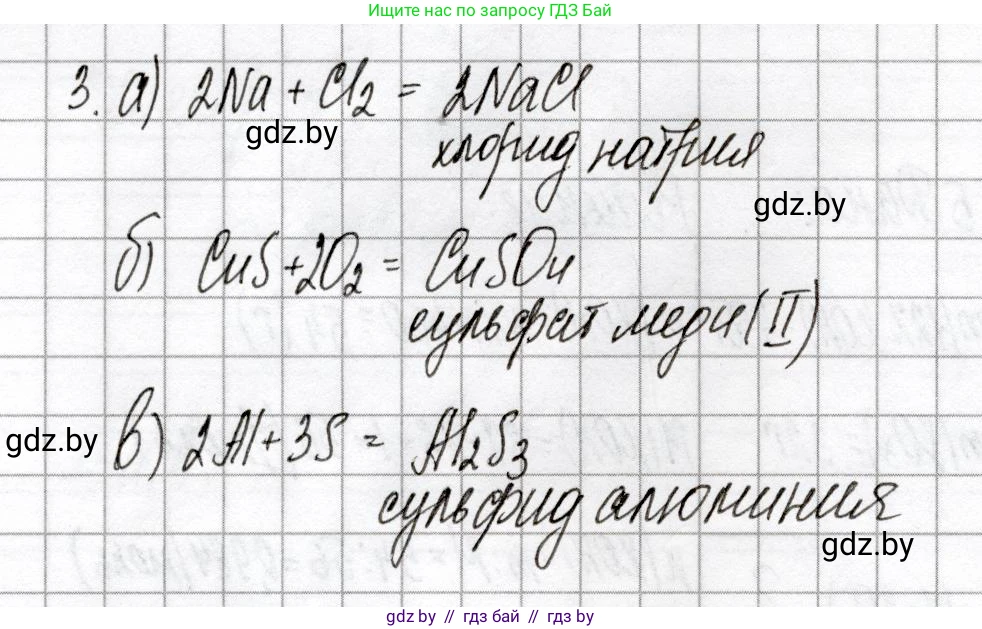 Ищите нас по запросу ГДЗ Бай
3. а) 2Na + Cl₂ = 2NaCl
gdz.by
хлорид натрия
gdz.by
б) CuS + 2O₂ = CuSO₄
сульфат меди (II)
gdz.by
в) 2Al + 3S = Al₂S₃
сульфид алюминия
gdz.by
gdz.by // гдз бай // гдз by